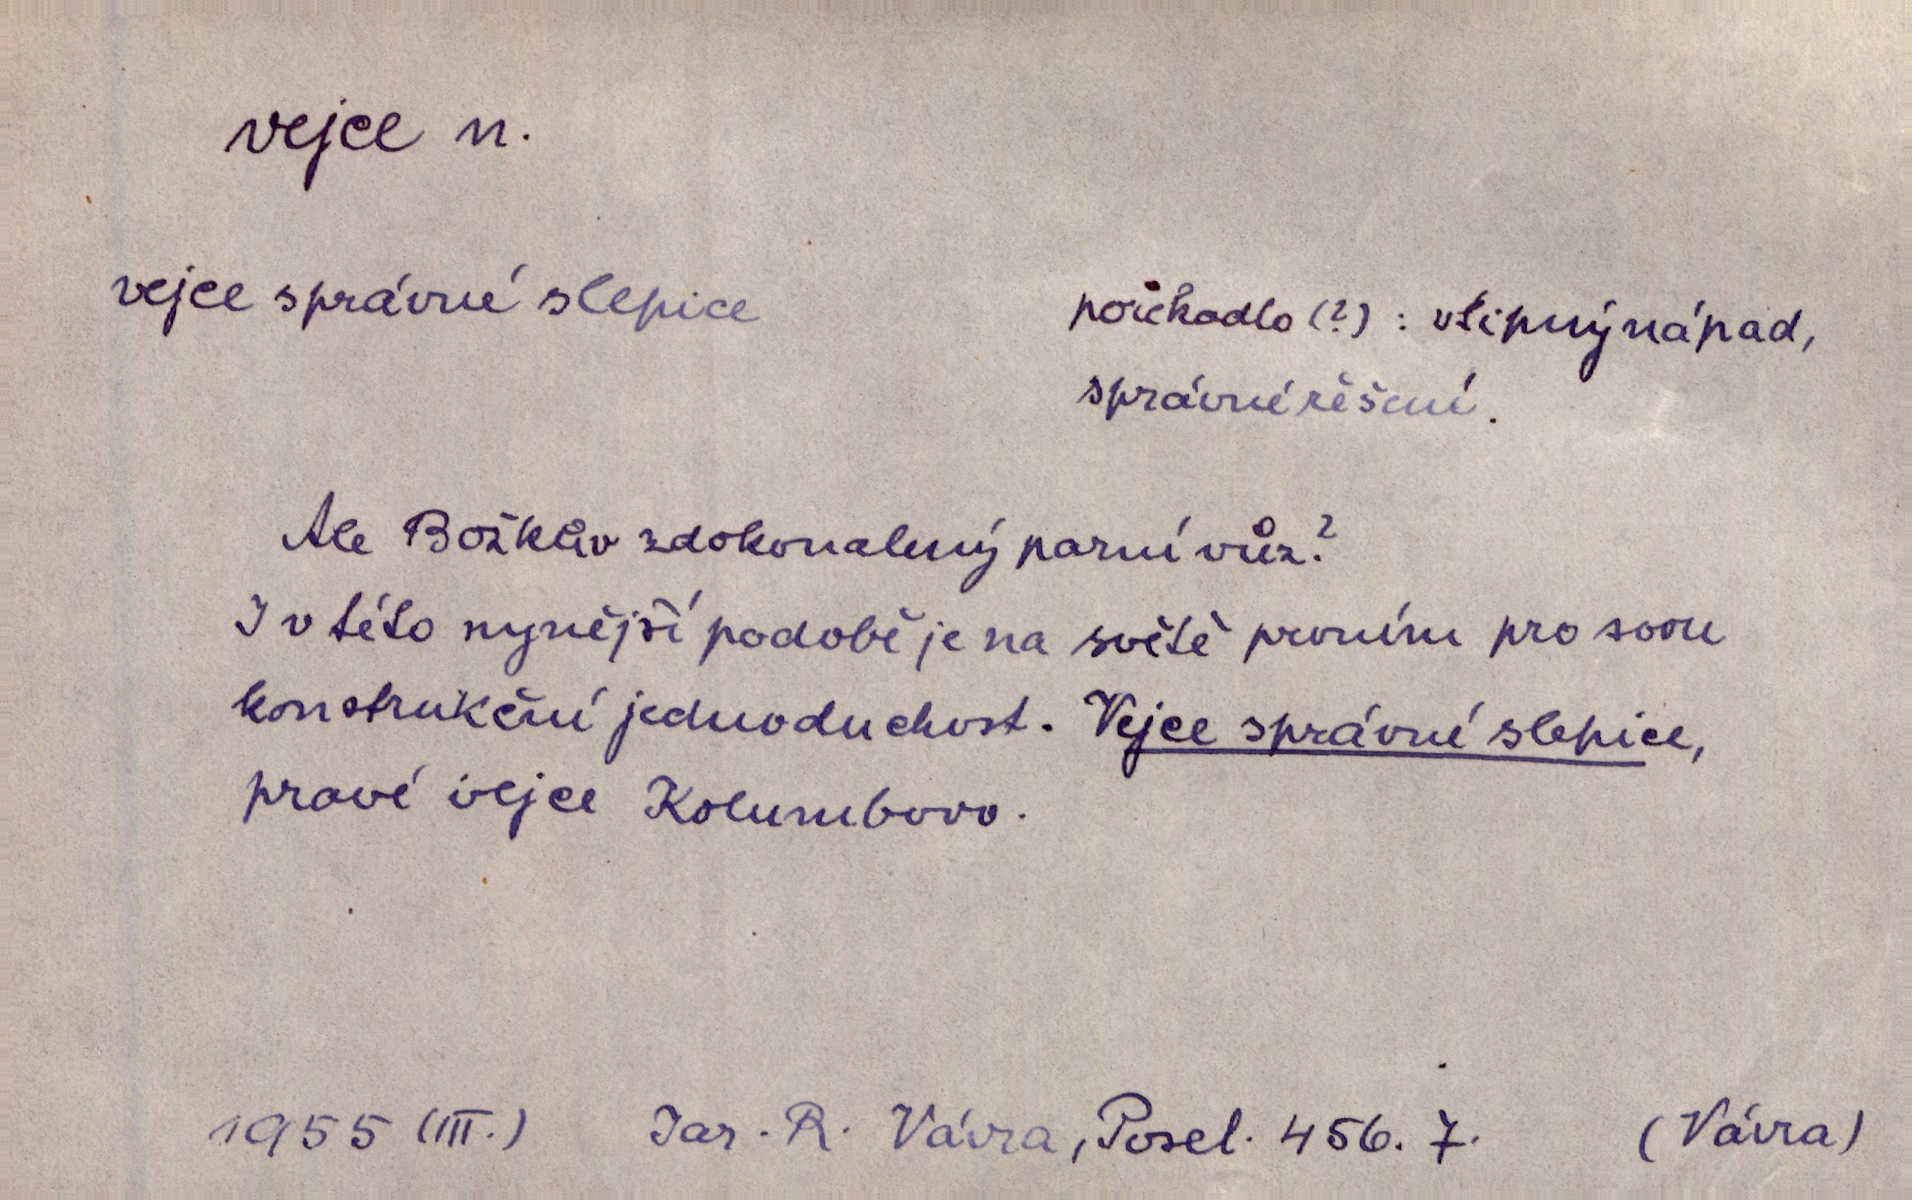 vejce n.
vejce správné slepice
pořekadlo (?) : vtipný nápad,
správné řešení.
Ale Božkův zdokonalený parní vůz?
I v této nynější podobě je na světě prvním pro svou
konstrukční jednoduchost. Vejce správné slepice,
pravé vejce Kolumbovo.
1955 (III.) Jar. R. Vávra, Posel. 456. 7. (Vávra)